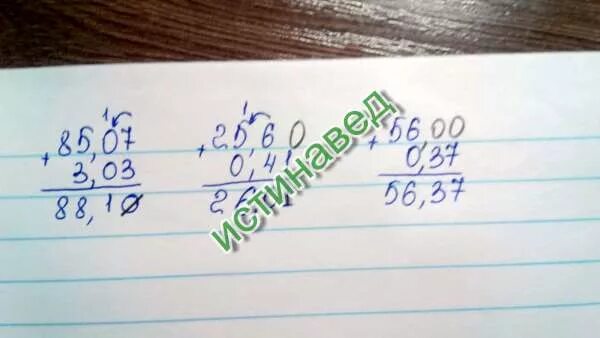 85,07
+
3,03
88,10
25,60
+
0,41
56,00
+
0,37
56,37
истинавед